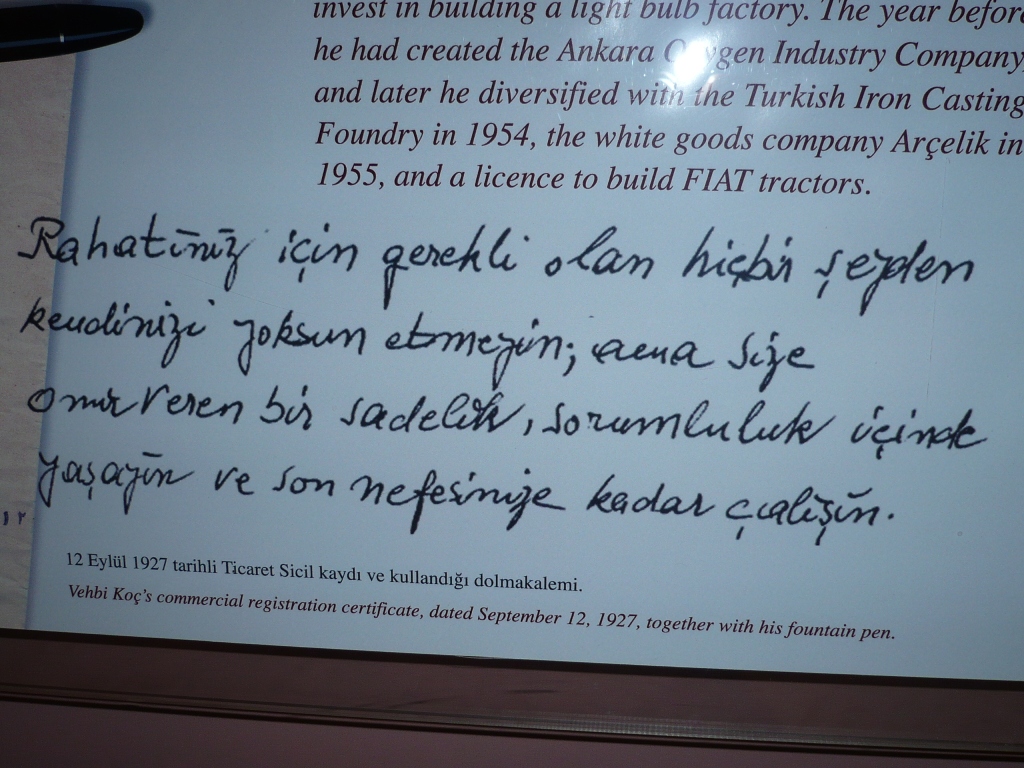 invest in building a light bulb factory. The year before
he had created the Ankara Oxygen Industry Company,
and later he diversified with the Turkish Iron Casting
Foundry in 1954, the white goods company Arçelik in
1955, and a licence to build FIAT tractors.
Rahatınız için gerekli olan hiçbir şeyden
kendinizi yoksun etmeyin; ama size
ömür veren bir sadelik, sorumluluk içinde
yaşayın ve son nefesinize kadar çalışın.
12 Eylül 1927 tarihli Ticaret Sicil kaydı ve kullandığı dolmakalemi.
Vehbi Koç's commercial registration certificate, dated September 12, 1927, together with his fountain pen.